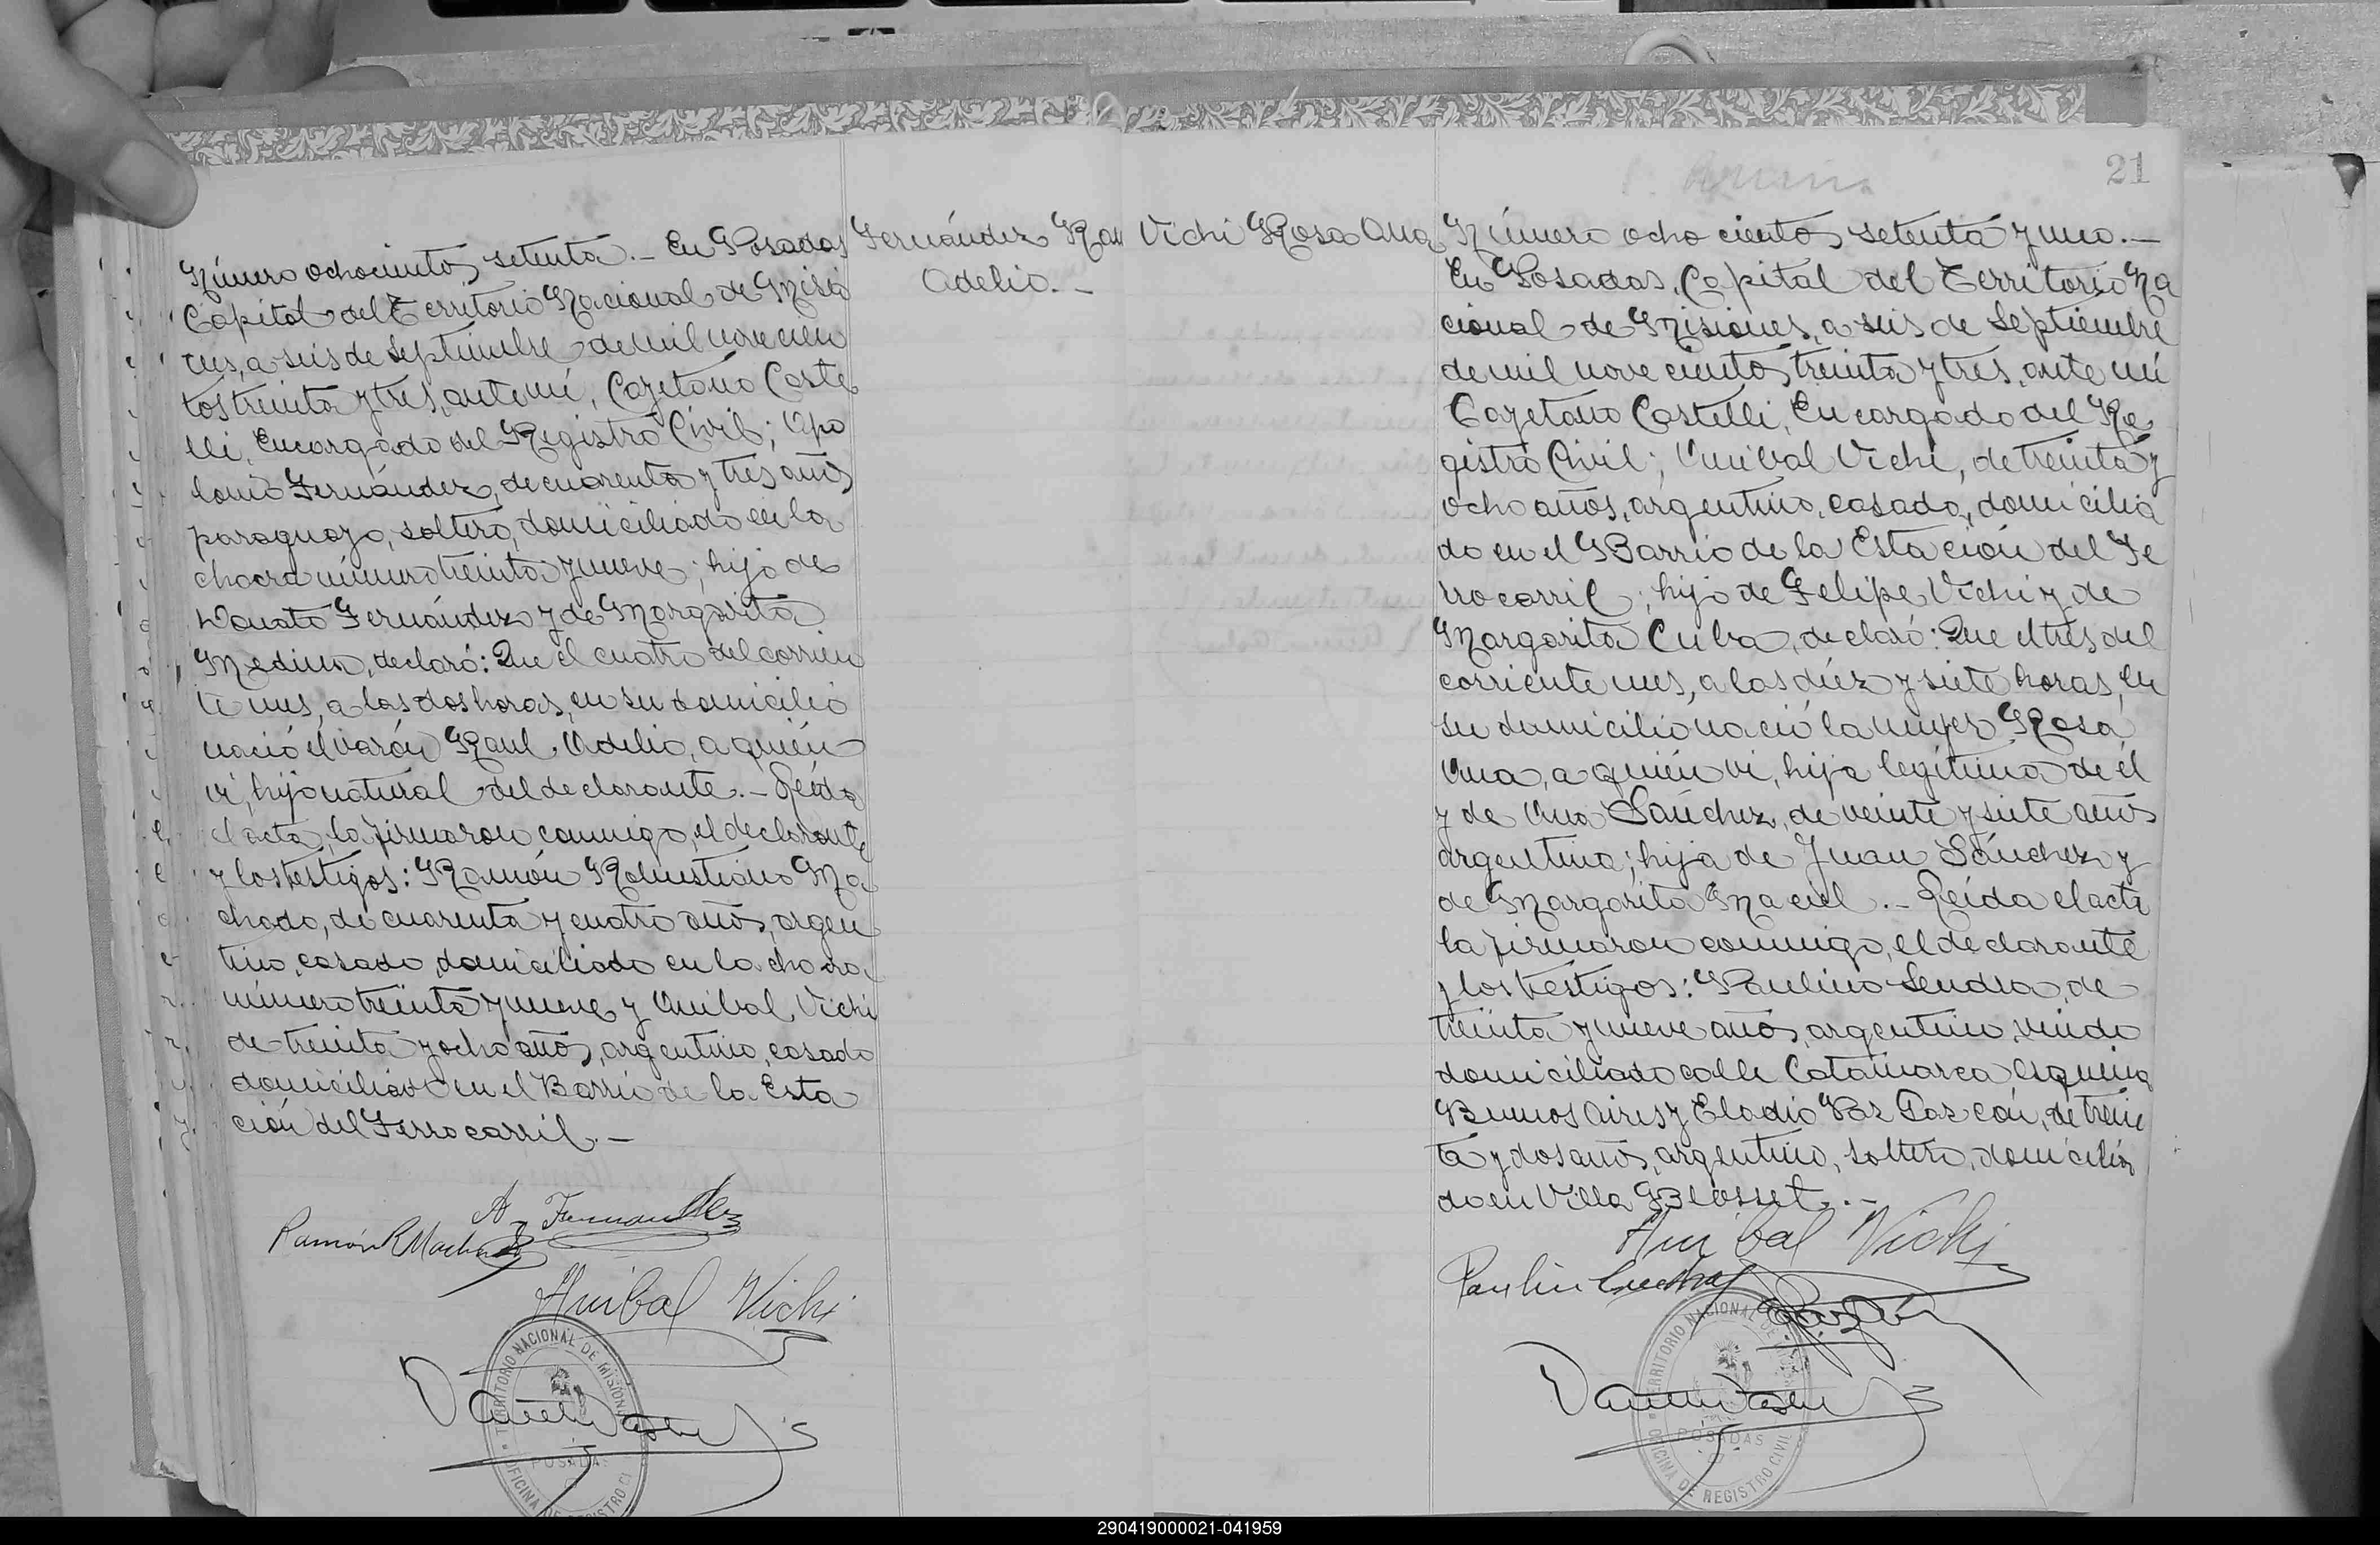 Número ochocientos setenta.- En Posadas
Capital del Territorio Nacional de Misio
nes, a seis de Septiembre de mil novecien
tos treinta y tres, ante mí, Cayetano Caste
lli, Encargado del Registro Civil; Apo
lonio Fernández, de cuarenta y tres años
paraguayo, soltero, domiciliado en la
chacra número treinta y nueve; hijo de
Donato Fernández y de Margarita
Medina, declaró: Que el cuatro del corrien
te mes, a las dos horas, en su domicilio
nació el varón Raul Adelio, a quién
vi, hijo natural del declarante.- Leída
el acta, la firmaron conmigo, el declarante
y los testigos: Ramón Robustiano Ma
chado, de cuarenta y cuatro años, argen
tino, casado, domiciliado en la chacra
número treinta y nueve y Anibal Vichi
de treinta y ocho años, argentino, casado
domiciliado en el Barrio de la Esta
ción del Ferrocarril.-
A. Fernandez
Ramón R Machado
Anibal Vichi
TERRITORIO NACIONAL DE MISIONES
POSADAS
OFICINA DE REGISTRO CI
Fernández Rau
Adelio.-
Vichi Rosa Ana
21
Número ochocientos setenta y uno.-
En Posadas, Capital del Territorio Na
cional de Misiones, a seis de Septiembre
de mil novecientos treinta y tres, ante mí
Cayetano Castelli, Encargado del Re
gistro Civil; Anibal Vichi, de treinta y
ocho años, argentino, casado, domicilia
do en el Barrio de la Estación del Fe
rrocarril; hijo de Felipe Vichi y de
Margarita Cuba, declaró: Que el tres del
corriente mes, a las diéz y siete horas, en
su domicilio nació la mujer Rosa
Ana, a quién vi, hija legítima de él
y de Ana Sánchez, de veinte y siete años
argentina; hija de Juan Sánchez y
de Margarita Maciel.- Leída el acta
la firmaron conmigo, el declarante
y los testigos: Paulino Sendra, de
treinta y nueve años, argentino, viudo
domiciliado calle Catamarca esquina
Buenos Aires y Eladio Paz Garzón, de trein
ta y dos años, argentino, soltero, domicilia
do en Villa Blosset.-
Anibal Vichi
TERRITORIO NACIONAL DE
POSADAS
OFICINA DE REGISTRO CIVIL
290419000021-041959